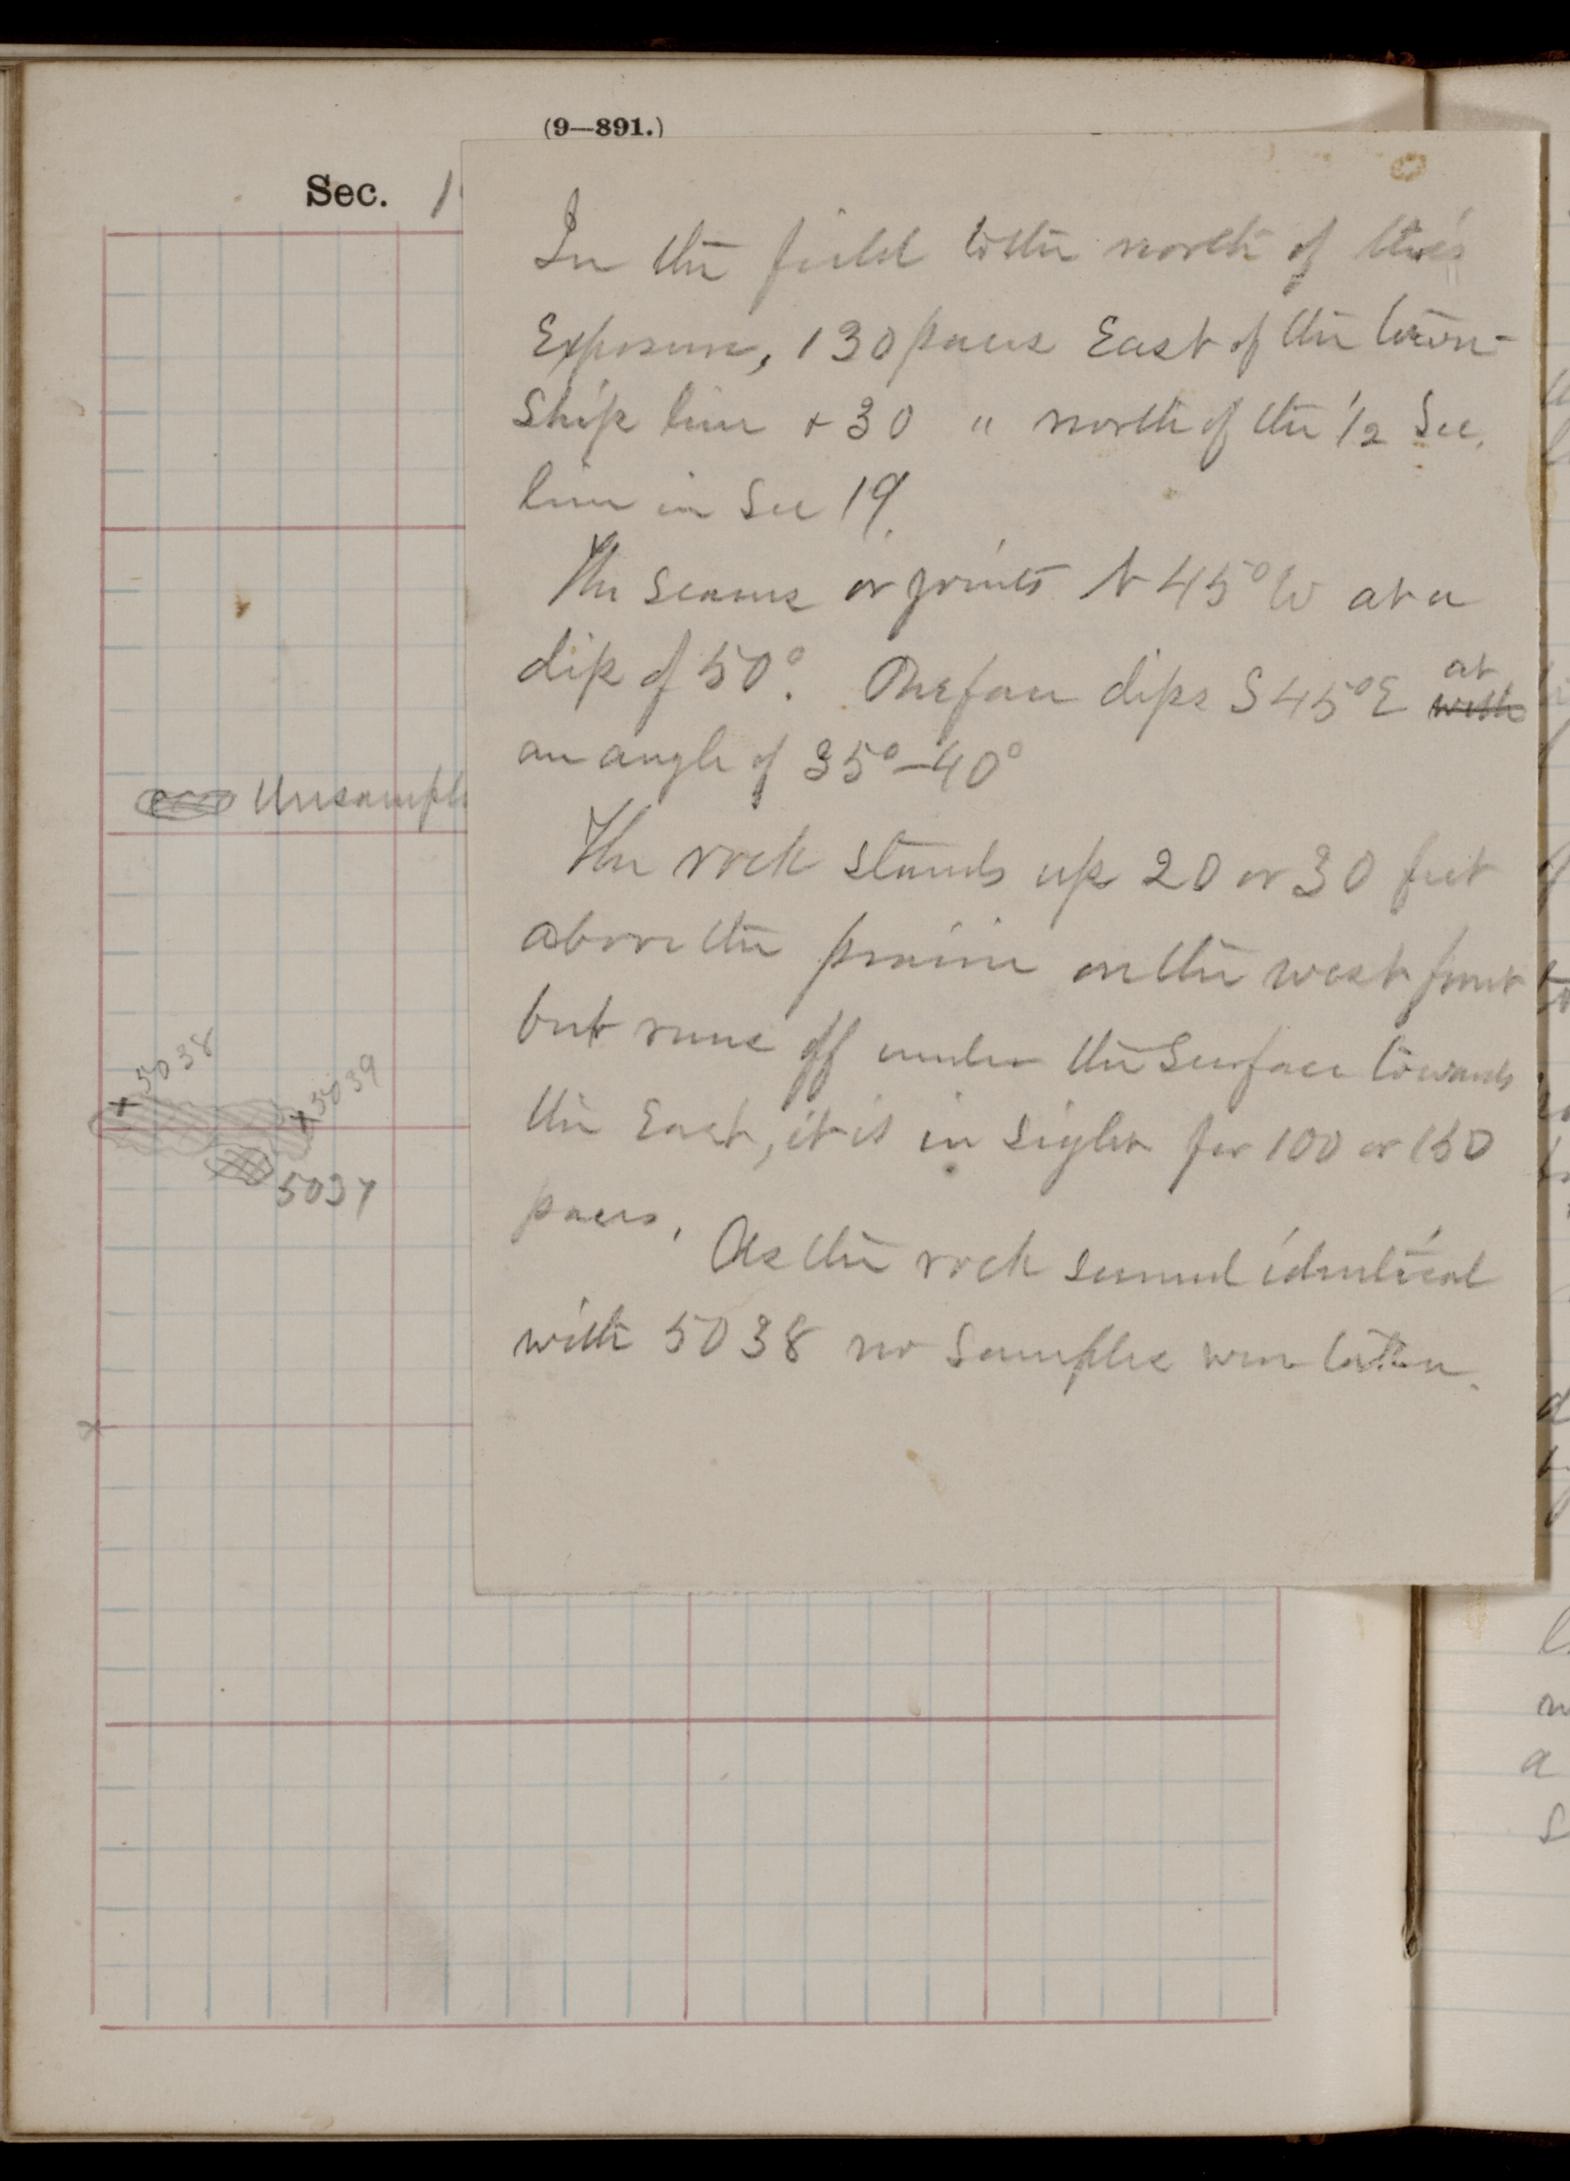 (9—891.)
Sec. 1
In the field to the north of this
Exposure, 130 paces East of the town-
ship line + 30 " north of the 1/2 Sec.
line in Sec 19.
The seams or joints N 45° W at a
dip of 50°. One face dips S 45° E at with
an angle of 35°–40°
The rock stands up 20 or 30 feet
above the prairie on the west front
but runs off under the Surface towards
the East, it is in sight for 100 or 150
paces. As the rock seemed identical
with 5038 no Samples were taken.
Unsampl
x 5038
x 5039
5037
x